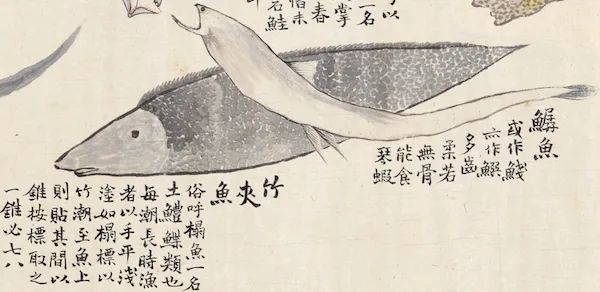 以
一名
掌
春
惜未
名鮭
魚
或作
亦作
多齒
柔若
無骨
能食
琴蝦
竹夾魚
俗呼榻魚一名
土鱧鰈類也
每潮長時漁
者以手平淺
塗如榻標以
竹潮至魚上
則貼其間以
錐按標取之
一錐必七八